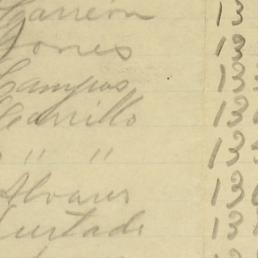 Carreon 13
Jones 13
Campos 13
Carrillo 13
" " 13
Alvarez 13
Hurtado 13